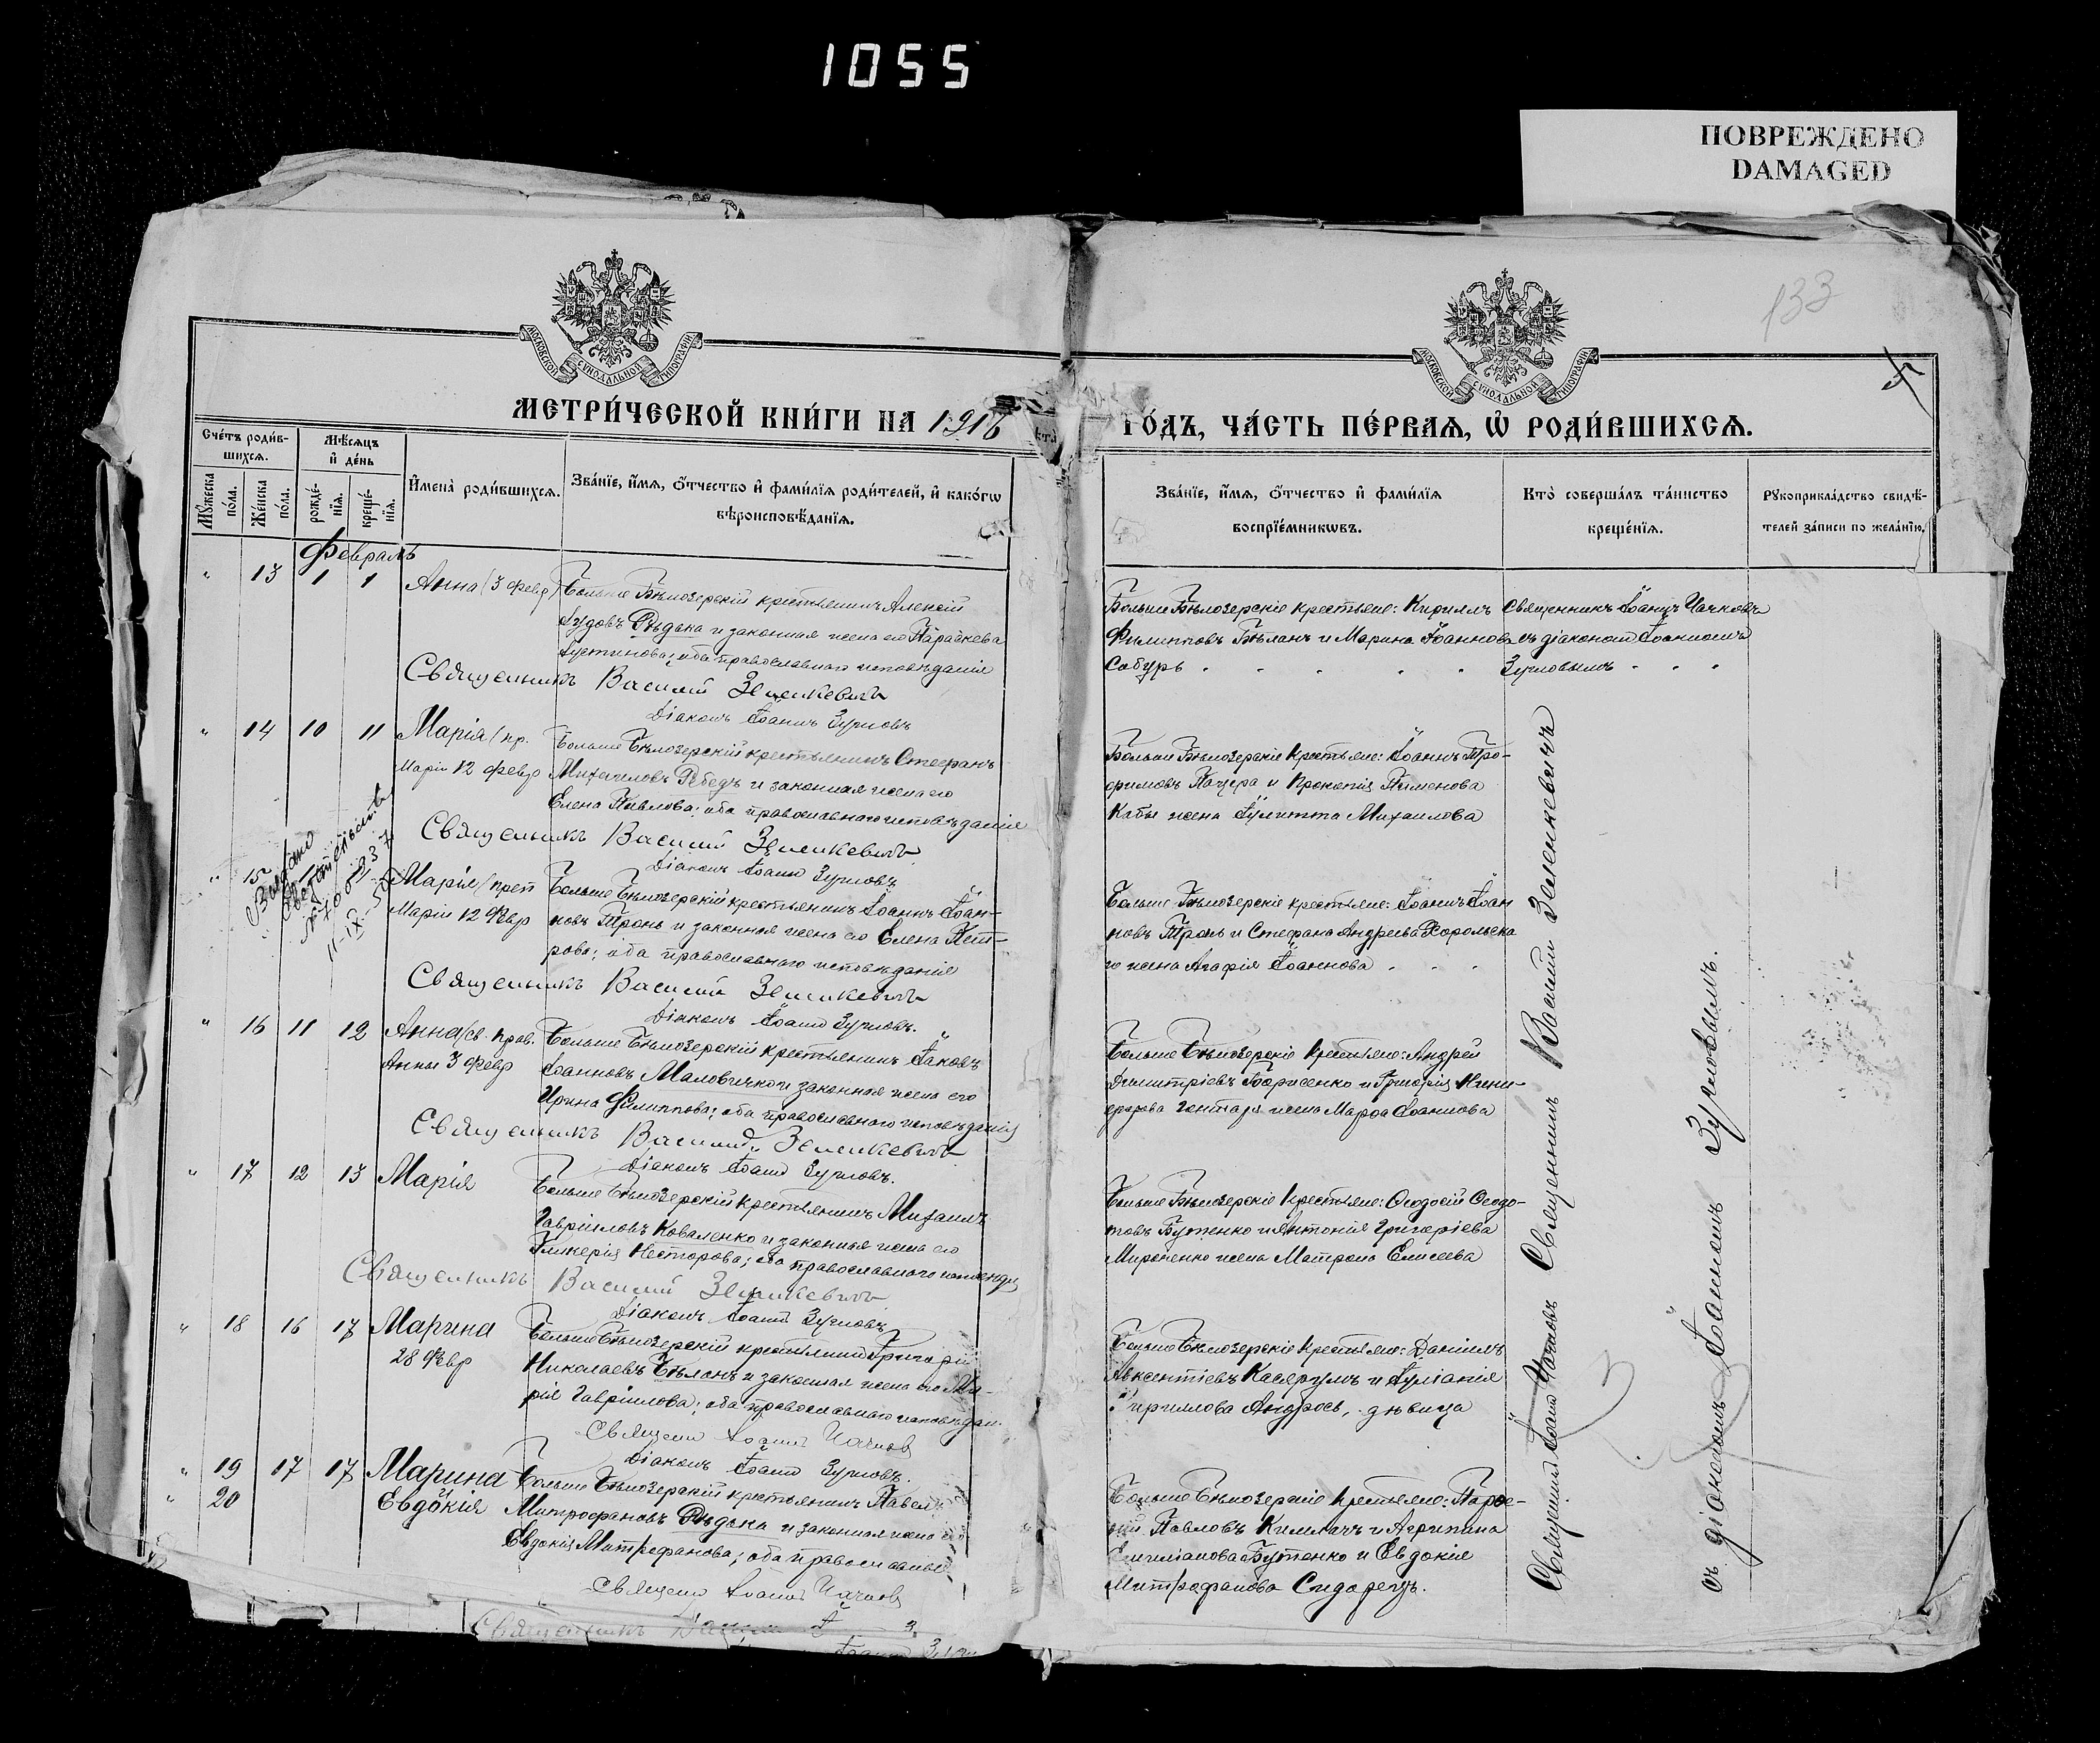 1055
ПОВРЕЖДЕНО
DAMAGED
133
5
МОСКОВСКОЙ СУНОДАЛЬНОЙ ТИПОГРАФІИ
МОСКОВСКОЙ СУНОДАЛЬНОЙ ТИПОГРАФІИ
МЕТРИ́ЧЕСКОЙ КНИ́ГИ НА 1916
ГО́ДЪ, ЧА́СТЬ ПЕ́РВАЯ, Ѡ РОДИ́ВШИХСѦ.
Сче́тъ роди́в-
шихсѧ.
Мѣ́сѧцъ
и҆ де́нь
Мꙋ́жеска
по́ла.
Же́нска
по́ла.
рожде́-
нїѧ.
креще́-
нїѧ.
И҆мена̀ роди́вшихсѧ.
Зва́нїе, и҆́мѧ, ѻ҆́тчество и҆ фами́лїѧ роди́телей, и҆ како́гѡ
вѣроисповѣ́данїѧ.
Зва́нїе, и҆́мѧ, ѻ҆́тчество и҆ фами́лїѧ
воспрїе́мникѡвъ.
Кто̀ соверша́лъ та́инство
креще́нїѧ.
Рꙋкоприкла́дство свидѣ́-
телей за́писи по жела́нїю.
Февраль
" 13 1 1 Анна (3 февр) Больше Бѣлозерскій крестьянинъ Алексій
Рѣдька и законная жена его Параскева
Іустинова; оба православнаго исповѣданія
Священникъ Василій Зеленкевичъ
Діаконъ Іоаннъ Зурновъ
Больше Бѣлозерскіе крестьяне: Кириллъ
Филипповъ Бѣланъ и Марина Іоаннова
Сабуръ
Священникъ Іоаннъ Чачковъ
съ діакономъ Іоанномъ
Зурновымъ
" 14 10 11 Марія (пр.
Маріи 12 февр
Больше Бѣлозерскій крестьянинъ Стефанъ
Михаиловъ Ребедь и законная жена его
Елена Павлова; оба православнаго исповѣданія
Священникъ Василій Зеленкевичъ
Діаконъ Іоаннъ Зурновъ
Больше Бѣлозерскіе крестьяне: Іоаннъ Тро-
фимовъ Пацера и Прокопія Пименова
жена Іулитта Михаилова
" 15
Выдано
Свидетельство
11-IX-
Марія (преп
Маріи 12 Февр
Больше Бѣлозерскій крестьянинъ Іоаннъ Іоан-
новъ Тронь и законная жена его Елена Пет-
рова; оба православнаго исповѣданія
Священникъ Василій Зеленкевичъ
Діаконъ Іоаннъ Зурновъ.
Больше Бѣлозерскіе крестьяне: Іоаннъ Іоан
новъ Тронь и Стефана Андреева Хорольска
го жена Агафія Іоаннова
" 16 11 12 Анна (св. прав.
Анны 3 Февр
Больше Бѣлозерскій крестьянинъ Іаковъ
Іоанновъ Маловичко и законная жена его
Ирина Филиппова; оба православнаго исповѣданія
Священникъ Василій Зеленкевичъ
Діаконъ Іоаннъ Зурновъ.
Больше Бѣлозерскіе крестьяне: Андрей
Димитріевъ Борисенко и Григорія Ники-
форова Гонтаря жена Марфа Іоаннова
" 17 12 13 Марія
Больше Бѣлозерскій крестьянинъ Михаилъ
Гавріиловъ Коваленко и законная жена его
Гликерія Несторова; оба православнаго
Священникъ Василій Зеленкевичъ
Діаконъ Іоаннъ Зурновъ
Больше Бѣлозерскіе крестьяне: Ѳеодосій Ѳеодо-
товъ Бутенко и Антонія Григоріева
Мироненко жена Матрона Елисеева
" 18 16 17 Марина
28 Февр
Больше Бѣлозерскій крестьянинъ Григорій
Николаевъ Бѣланъ и законная жена его Ма-
рія Гавріилова; оба православнаго исповѣдан.
Священн Іоаннъ Чачков
Діаконъ Іоаннъ Зурновъ.
Больше Бѣлозерскіе крестьяне: Даніилъ
Авксентіевъ и Іуліанія
Кириллова Андрось, дѣвица
" 19 17 17 Марина
" 20 Евдокія
Больше Бѣлозерскій крестьянинъ Павелъ
Митрофановъ Рѣдька и законная жена его
Евдокія Митрофанова; оба православные
Священн Іоаннъ Чачков
Больше Бѣлозерскіе крестьяне: Парѳе-
ній Павловъ и Агрипина
Емиліанова Бутенко и Евдокія
Митрофанова Сидорецъ.
Священники Іоаннъ Чачковъ Священникъ Василій Зеленкевичъ
съ діакономъ Іоанномъ Зурновымъ.
Священникъ